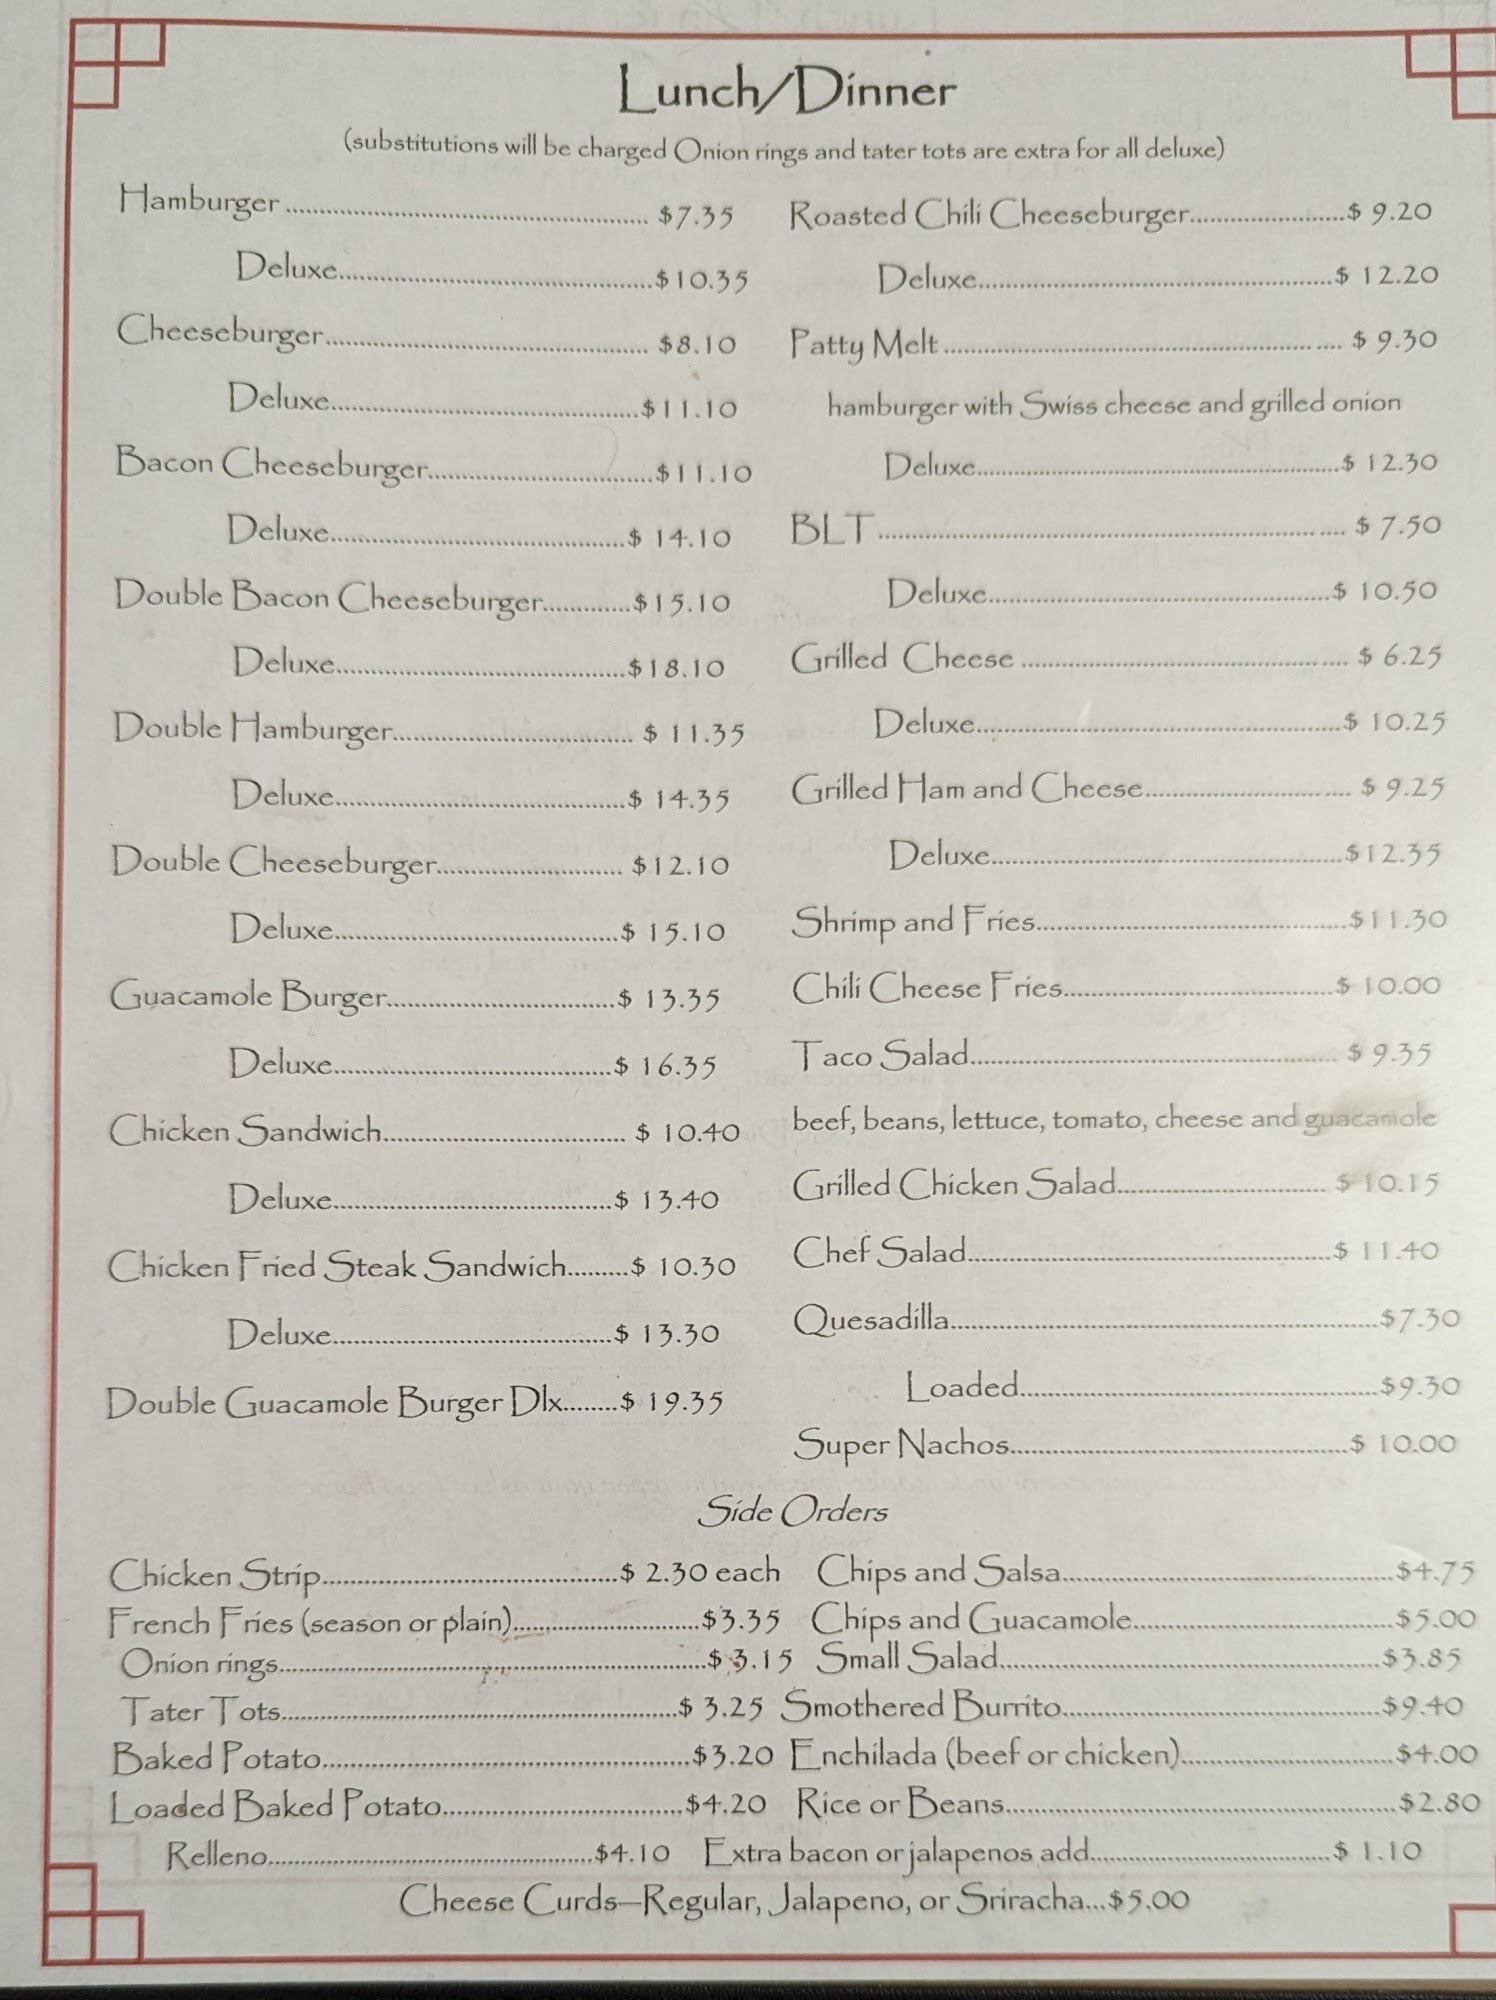 Lunch/Dinner
(substitutions will be charged Onion rings and tater tots are extra for all deluxe)
Hamburger.......... $7.35
Deluxe..........$10.35
Cheeseburger.......... $8.10
Deluxe..........$11.10
Bacon Cheeseburger..........$11.10
Deluxe..........$ 14.10
Double Bacon Cheeseburger..........$15.10
Deluxe..........$18.10
Double Hamburger.......... $ 11.35
Deluxe..........$ 14.35
Double Cheeseburger.......... $12.10
Deluxe..........$ 15.10
Guacamole Burger..........$ 13.35
Deluxe..........$ 16.35
Chicken Sandwich.......... $ 10.40
Deluxe..........$ 13.40
Chicken Fried Steak Sandwich.........$ 10.30
Deluxe..........$ 13.30
Double Guacamole Burger Dlx........$ 19.35
Roasted Chili Cheeseburger..........$ 9.20
Deluxe..........$ 12.20
Patty Melt.......... $ 9.30
hamburger with Swiss cheese and grilled onion
Deluxe..........$ 12.30
BLT.......... $ 7.50
Deluxe..........$ 10.50
Grilled Cheese.......... $ 6.25
Deluxe..........$ 10.25
Grilled Ham and Cheese.......... $ 9.25
Deluxe..........$12.35
Shrimp and Fries..........$11.30
Chili Cheese Fries..........$ 10.00
Taco Salad.......... $ 9.35
beef, beans, lettuce, tomato, cheese and guacamole
Grilled Chicken Salad.......... $ 10.15
Chef Salad..........$ 11.40
Quesadilla..........$7.30
Loaded..........$9.30
Super Nachos..........$ 10.00
Side Orders
Chicken Strip..........$ 2.30 each
French Fries (season or plain)..........$3.35
Onion rings..........$ 3.15
Tater Tots..........$ 3.25
Baked Potato..........$3.20
Loaded Baked Potato..........$4.20
Relleno..........$4.10
Chips and Salsa..........$4.75
Chips and Guacamole..........$5.00
Small Salad..........$3.85
Smothered Burrito..........$9.40
Enchilada (beef or chicken)..........$4.00
Rice or Beans..........$2.80
Extra bacon or jalapenos add..........$ 1.10
Cheese Curds—Regular, Jalapeno, or Sriracha...$5.00